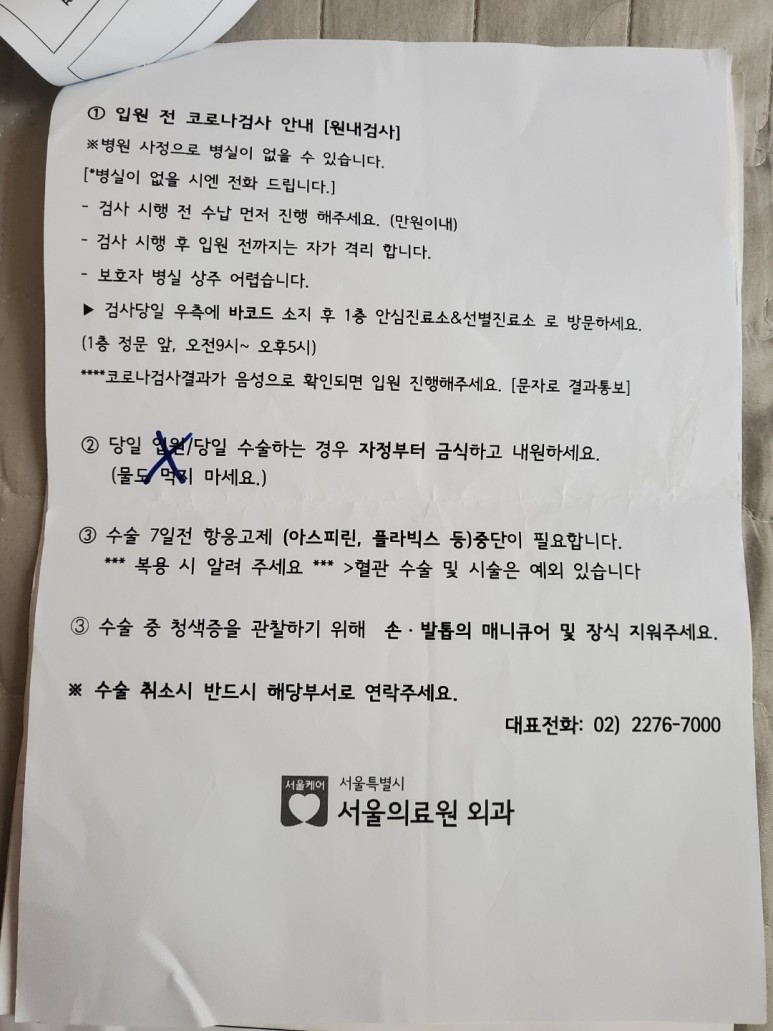 ① 입원 전 코로나검사 안내 [원내검사]
※병원 사정으로 병실이 없을 수 있습니다.
[*병실이 없을 시엔 전화 드립니다.]
- 검사 시행 전 수납 먼저 진행 해주세요. (만원이내)
- 검사 시행 후 입원 전까지는 자가 격리 합니다.
- 보호자 병실 상주 어렵습니다.
▶ 검사당일 우측에 바코드 소지 후 1층 안심진료소&선별진료소 로 방문하세요.
(1층 정문 앞, 오전9시~ 오후5시)
****코로나검사결과가 음성으로 확인되면 입원 진행해주세요. [문자로 결과통보]
② 당일 입원/당일 수술하는 경우 자정부터 금식하고 내원하세요.
(물도 먹지 마세요.)
③ 수술 7일전 항응고제 (아스피린, 플라빅스 등)중단이 필요합니다.
*** 복용 시 알려 주세요 *** >혈관 수술 및 시술은 예외 있습니다
③ 수술 중 청색증을 관찰하기 위해 손 · 발톱의 매니큐어 및 장식 지워주세요.
※ 수술 취소시 반드시 해당부서로 연락주세요.
대표전화: 02) 2276-7000
서울케어
서울특별시
서울의료원 외과